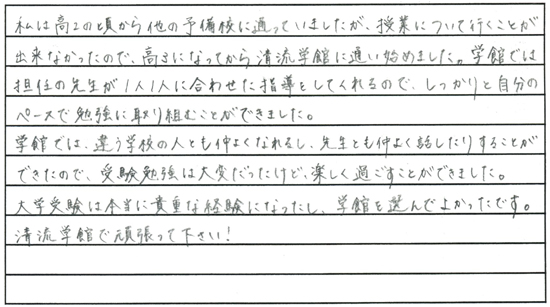 私は高2の頃から他の予備校に通っていましたが、授業について行くことが
出来なかったので、高3になってから清流学館に通い始めました。学館では
担任の先生が1人1人に合わせた指導をしてくれるので、しっかりと自分の
ペースで勉強に取り組むことができました。
学館では、違う学校の人とも仲よくなれるし、先生とも仲よく話したりすることが
できたので、受験勉強は大変だったけど、楽しく過ごすことができました。
大学受験は本当に貴重な経験になったし、学館を選んでよかったです。
清流学館で頑張って下さい!